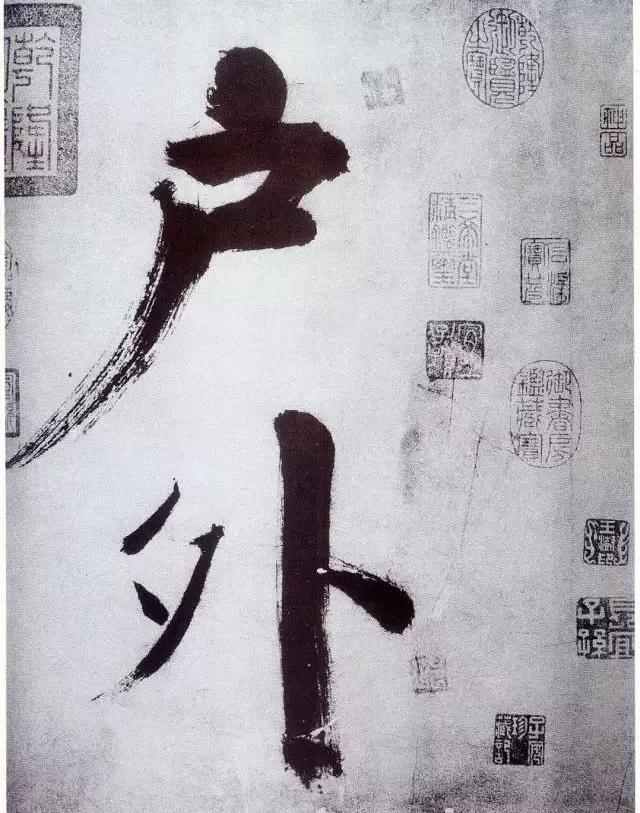 户外
乾隆御覽之寶
神品
三希堂精鑑璽
石渠寶笈
宜子孫
御書房鑑藏寶
長宜子孫
乾隆